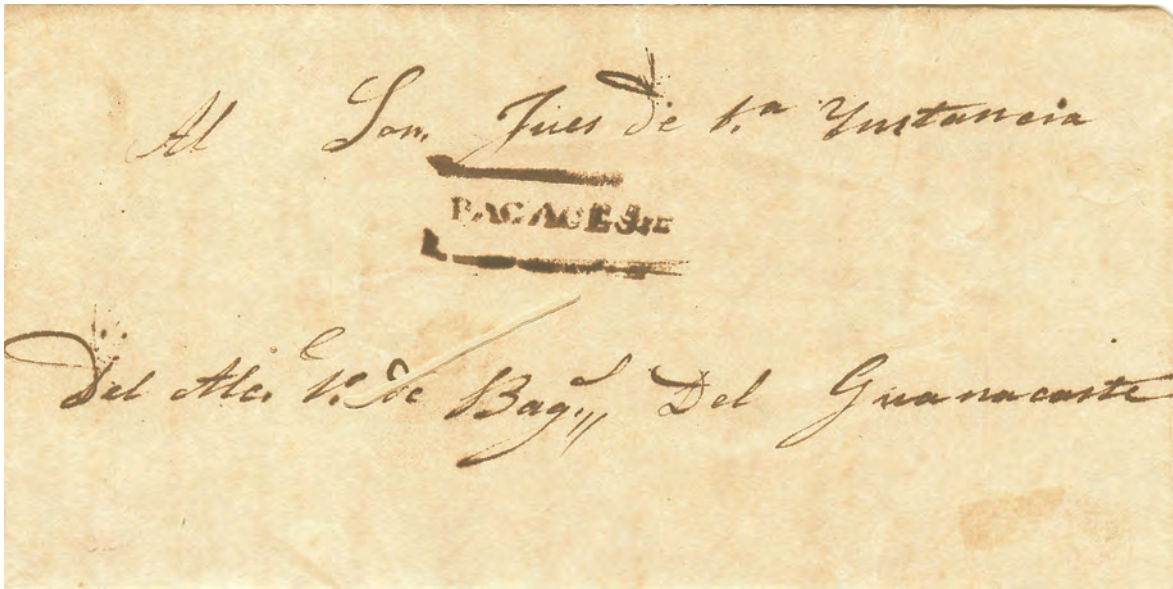 Al Sor. Jues de 1.ª Ynstancia
BAGACES
Del Alc.e 1.º de Bag.s Del Guanacaste